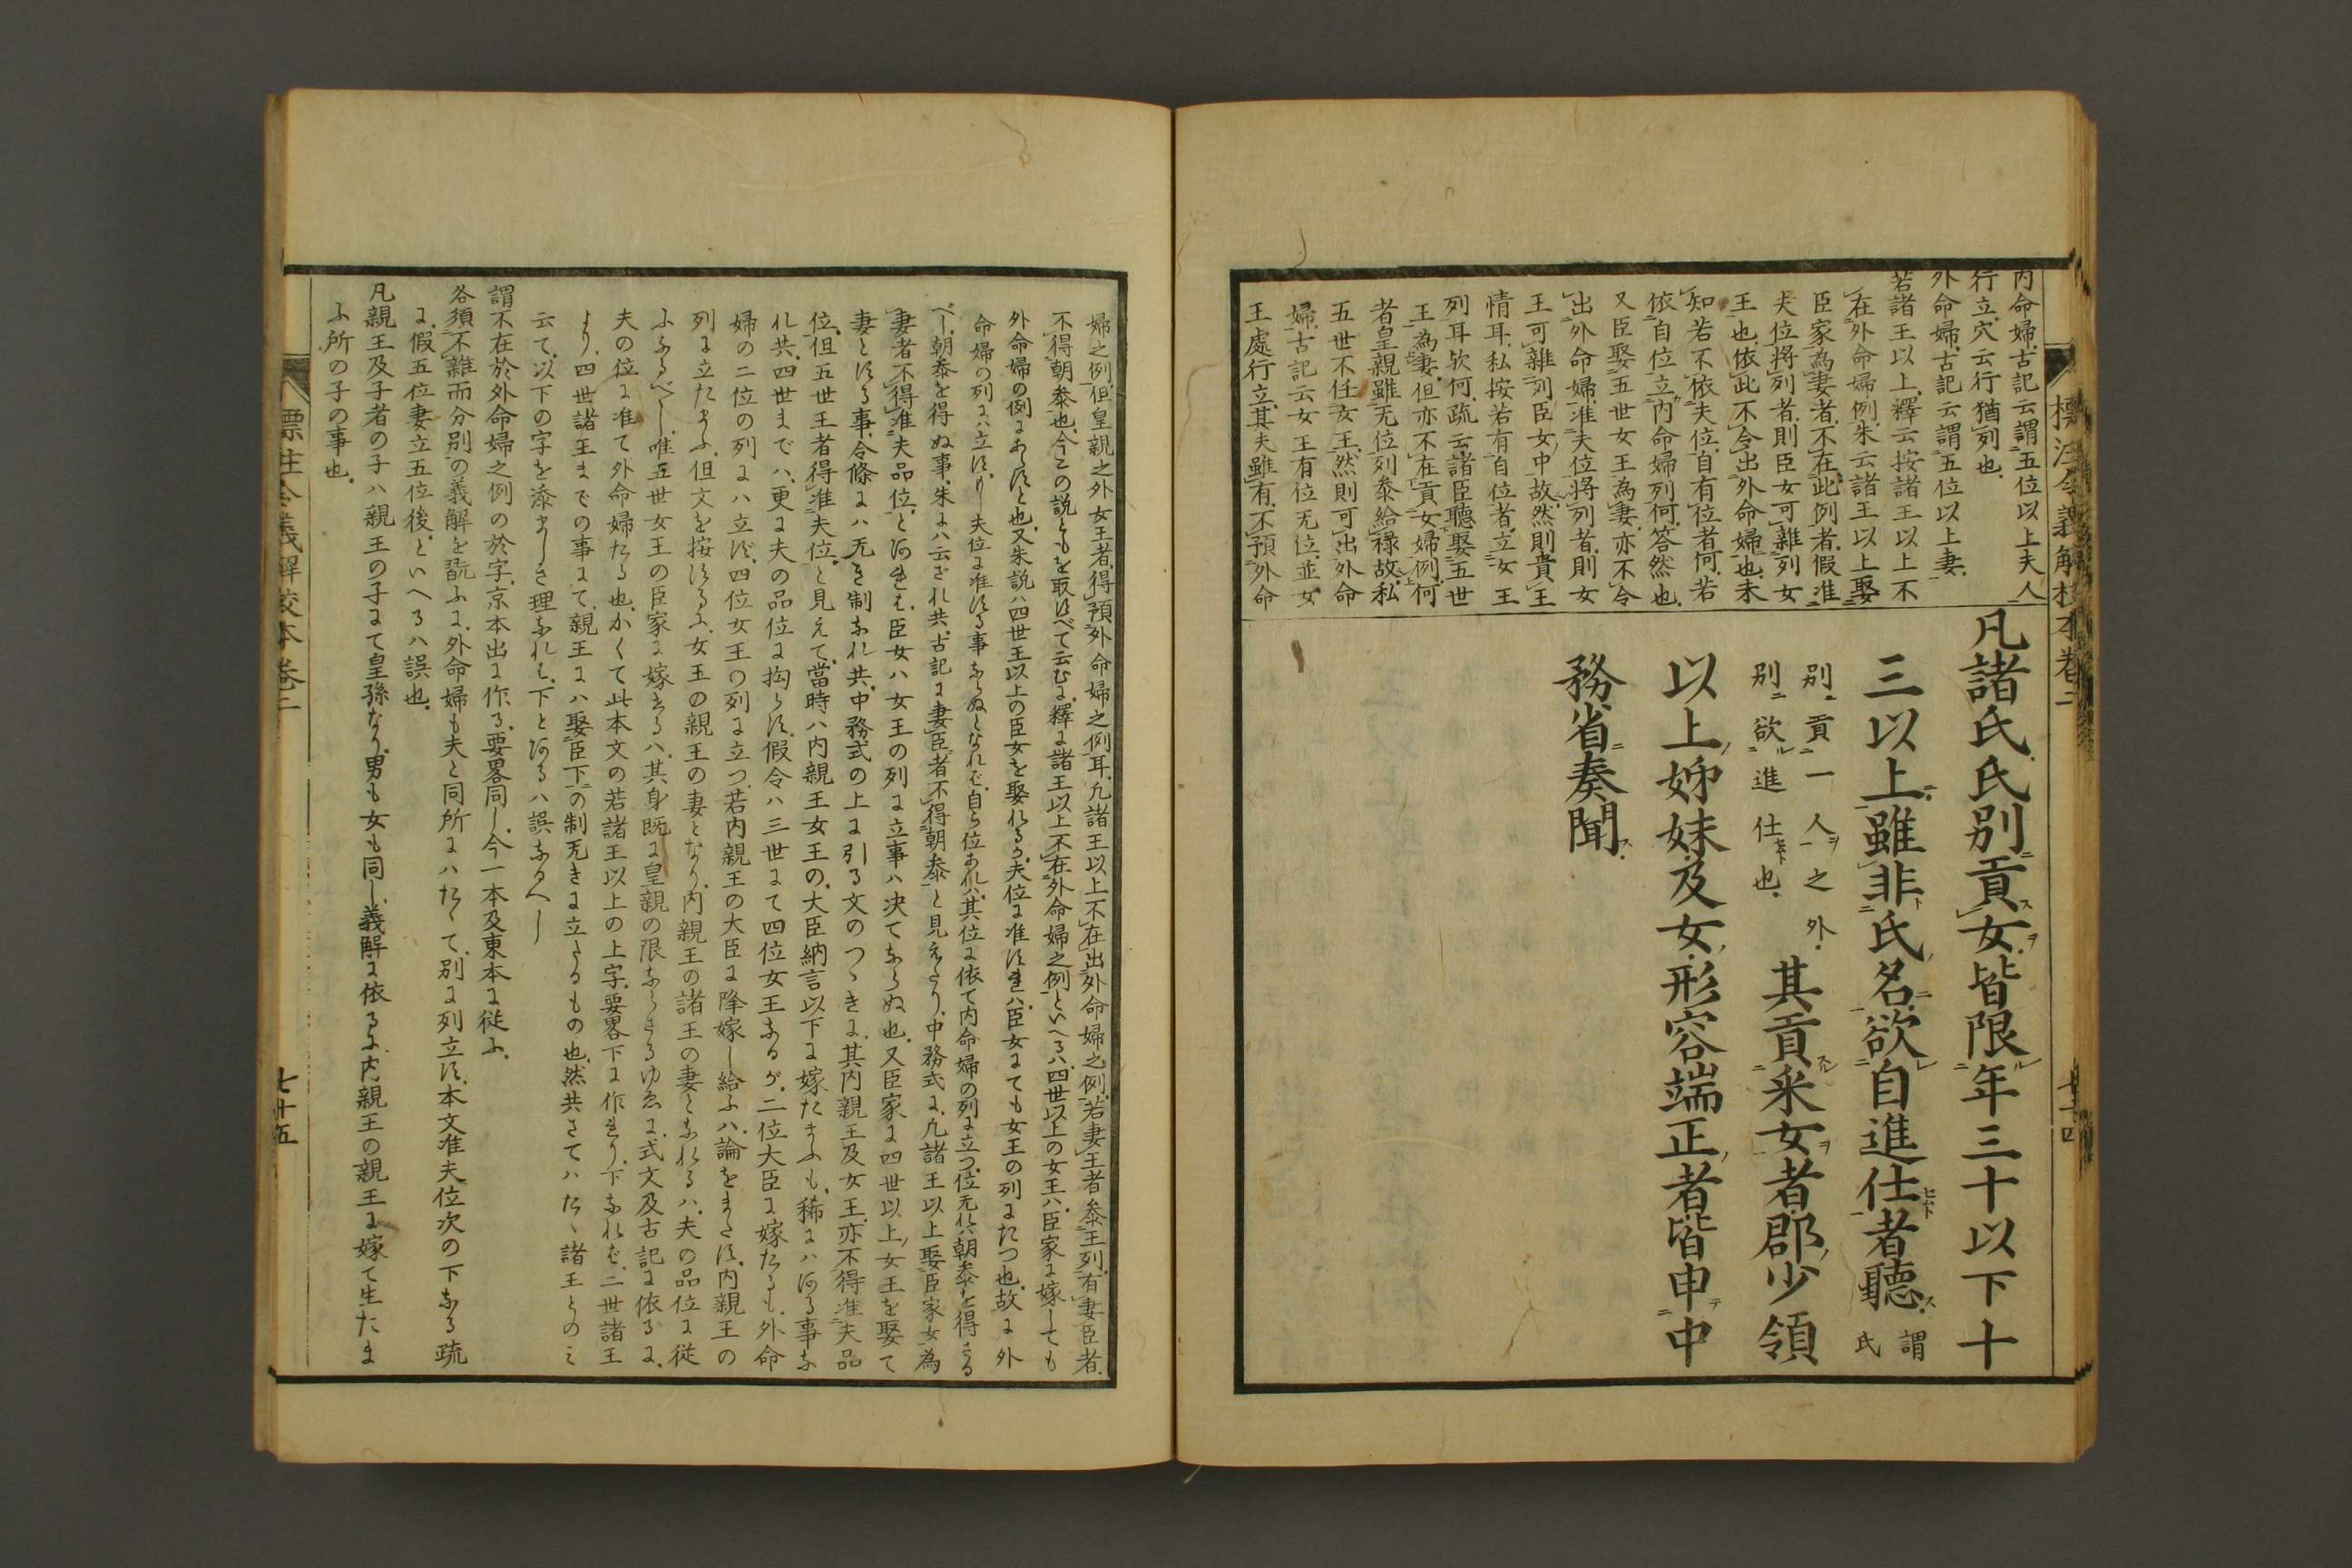 標注令義解校本卷二
内命婦、古記云謂五位以上夫人
行立、穴云行猶列也、
外命婦、古記云謂五位以上妻、
若諸王以上、釋云按諸王以上不
在外命婦例、朱云諸王以上娶
臣家為妻者、不在此例者、假准
夫位將列者、則臣女可雜列女
王也、依此不令出外命婦也、未
知若不依夫位、自有位者何、若
依自位立内命婦列何、答然也、
又臣娶五世女王為妻、亦不令
出外命婦、准夫位將列者、則女
王可雜列臣女中故、然則貴王
情耳、私按若有自位者、立女王
列耳欤何、疏云諸臣聽娶五世
王為妻、但亦不在貢女婦例、何
者皇親雖无位列泰給祿故、私
五世不任女王、然則可出外命
婦、古記云女王有位无位、並女
王處行立、其夫雖有、不預外命
凡諸氏、氏別貢女、皆限年三十以下十
三以上、雖非氏名、欲自進仕者聽、謂氏
別貢一人之外、別欲進仕也、其貢采女者、郡少領
以上姉妹及女、形容端正者、皆申中
務省奏聞、
婦之例、但皇親之外女王者、得預外命婦之例耳、凡諸王以上不在出外命婦之例、若妻王者泰王列、有妻臣者、
不得朝泰也、今この説ともを取すべて云むに、釋に諸王以上不在外命婦之例といへるハ、四世以上の女王ハ、臣家に嫁しても
外命婦の例にあらすと也、又朱説ハ四世王以上の臣女を娶れるか、夫位に准すれハ、臣女にても女王の列にたつ也、故に外
命婦の列にハ立す、
べし、朝泰を得ぬ事、朱にハ云ざれ共、古記に妻臣者不得朝泰と見えたり、中務式に、凡諸王以上娶臣家女為
妻者、不得准夫品位、とあれは、臣女ハ女王の列に立事ハ決てならぬ也、又臣家に四世以上ノ女王を娶て
妻とする事、令條にハ无き制なれ共、中務式の上に引る文のつゝきに、其内親王及女王、亦不得准夫品
位、但五世王者得准夫位、と見えて、當時ハ内親王女王の、大臣納言以下に嫁たまふも、稀にハある事な
れ共、四世までハ、更に夫の品位に拘らす、假令ハ三世にて四位女王あるが、二位大臣に嫁たるも、外命
婦の二位の列にハ立ず、四位女王の列に立つ、若内親王の大臣に降嫁し給ふハ、論をまたす、内親王の
列に立たまふ、但文を按するに、女王の親王の妻となり、内親王の諸王の妻となれるハ、夫の品位に従
ふなるべし、唯五世女王の臣家に嫁するハ、其身既に皇親の限ならさるゆゑに、式文及古記に依るに、
夫の位に准て外命婦たる也、かくて此本文の若諸王以上の上字、要畧下に作れり、下なれば、二世諸王
より、四世諸王までの事にて、親王にハ娶臣下の制无きに立たるもの也、然共さてハたゝ諸王とのミ
云て、以下の字を添ましき理なれは、下とあるハ誤なるへし
謂不在於外命婦之例の於字、京本出に作る、要畧同し、今一本及東本に従ふ、
各須不雜而分別の義解を翫ふに、外命婦も夫と同所にハたゝて、別に列立す、本文准夫位次の下なる疏
に、假五位妻立五位後、といへるハ誤也、
凡親王及子者の子ハ親王の子にて皇孫なり、男も女も同し、義解に依るに、内親王の親王に嫁て生たま
ふ所の子の事也、
標注令義解校本卷二
七十五